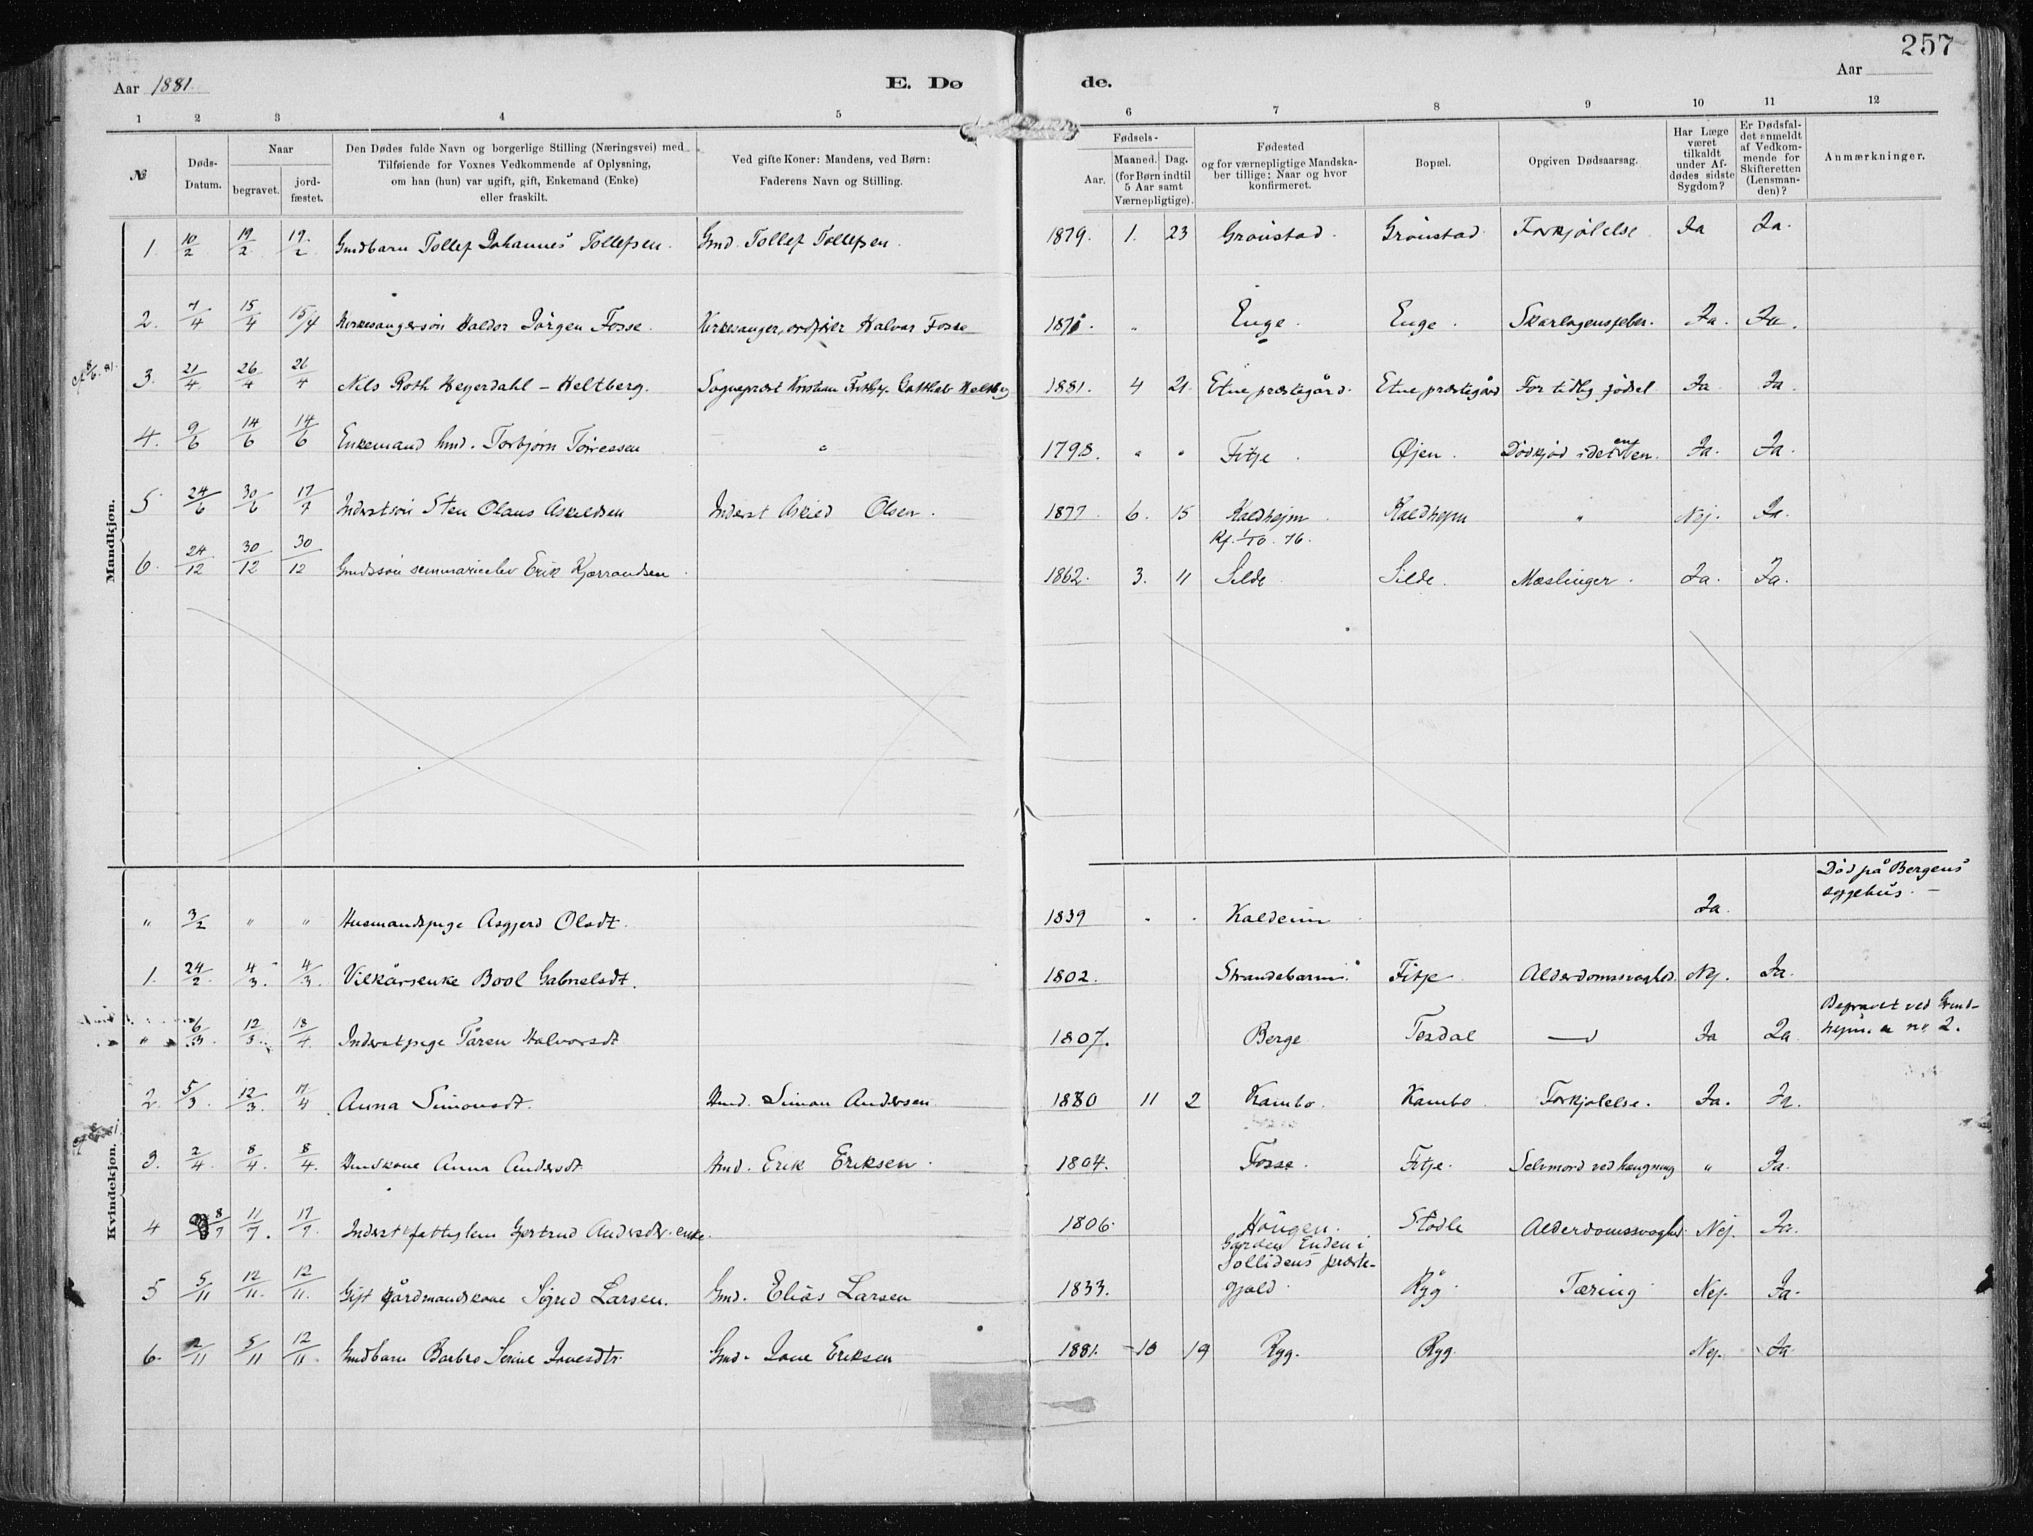 257
Aar 1881.
E. Døde.
Aar
1 2 3 4 5 6 7 8 9 10 11 12
№
Døds-Datum.
Naar
begravet.
jord-fæstet.
Den Dødes fulde Navn og borgerlige Stilling (Næringsvei) med
Tilføiende for Voxnes Vedkommende af Oplysning,
om han (hun) var ugift, gift, Enkemand (Enke)
eller fraskilt.
Ved gifte Koner: Mandens, ved Børn:
Faderens Navn og Stilling.
Fødsels-
Aar.
Maaned. Dag.
(for Børn indtil
5 Aar samt
Værnepligtige).
Fødested
og for værnepligtige Mandska-
ber tillige: Naar og hvor
konfirmeret.
Bopæl.
Opgiven Dødsaarsag.
Har Læge
været
tilkaldt
under Af-
dødes sidste
Sygdom?
Er Dødsfal-
det anmeldt
af Vedkom-
mende for
Skifteretten
(Lensman-
den)?
Anmærkninger.
Mandkjøn.
1. 10/2 19/2 19/2 Gmdbarn Tollef Johannes Tollefsen. Gmd. Tollef Tollefsen. 1879. 1. 23 Grönstad. Grönstad Forkjølelse Ja Ja.
2. 7/4 15/4 15/4 Kirkesangersøn Haldor Jörgen Fosse. Kirkesanger, ordfører Halvor Fosse 187 " Enge. Enge. Skarlagensfeber. Ja. Ja.
3. 21/4 26/4 26/4 Nils Roth Heyerdahl - Heltberg. Sogneprest Kristian Gottlieb Heltberg 1881. 4 21 Etne præstegård. Etne præstegård For tidlig födsel Ja. Ja.
4. 9/6 14/6 14/6 Enkemand hmd. Torbjørn Törressen " 1798. " " Fitje. Øjen. Ja. Ja.
5 24/6 30/6 17/7 Inderstsön Sten Olaus Askildsen Inderst Askild Olsen. 1877 6. 15 Kaldhejm Kaldhejm " Nej. Ja.
Kf. 1/10. 76.
6. 24/12 30/12 30/12 Gmdssön seminarieelev Erik Kjærrandsen. 1862. 3. 11 Silde Silde. Mæslinger. Ja. Ja.
Kvindekjøn.
Död på Bergens
sygehus. —
" 3/2 " " Husmandspige Asgjerd Olsdt. 1839 " " Kaldeim Ja.
1. 24/2 4/3. 4/3. Vilkårsenke Bool Gabrielsdt. 1802. Strandebarm. Fitje Alderdomssvaghed. Nej. Ja.
Begravet ved Grind-
hejm. no. 2.
" 6/3 12/3. 18/4 Inderstpige Tåren Halvorsdt 1807. Berge Tesdal —"— Ja Ja
2. 5/3. 12/3. 17/4 Anna Simonsdt. Hmd. Simon Andersen 1880 11 2 Kambo. Kambo Forkjølelse. Ja. Ja.
3. 2/4. 8/4. 8/4. Hmdskone Anna Andersdt Hmd. Erik Eriksen. 1804. Fosse. Fitje. Selvmord ved hængning " Ja.
4 8/7 11/7. 17/7. Inderst & fattiglem Gjertrud Andersdtr. enke. 1806. Haugen. Stödle Alderdomssvaghed Nej. Ja.
Garden Enden i
Jollidens præste-
5 5/11 12/11. 12/11. Gift gårdmandskone Sigrid Larsen. Gmd. Elias Larsen 1833. gjæld. Ryg. Tæring Nej. Ja.
6. 2/11 5/11 12/11. Gmdbarn Barbro Serine Jonesdtr. Gmd. Jone Eriksen 1881. 10 19 Ryg. Ryg. Nej. Ja.